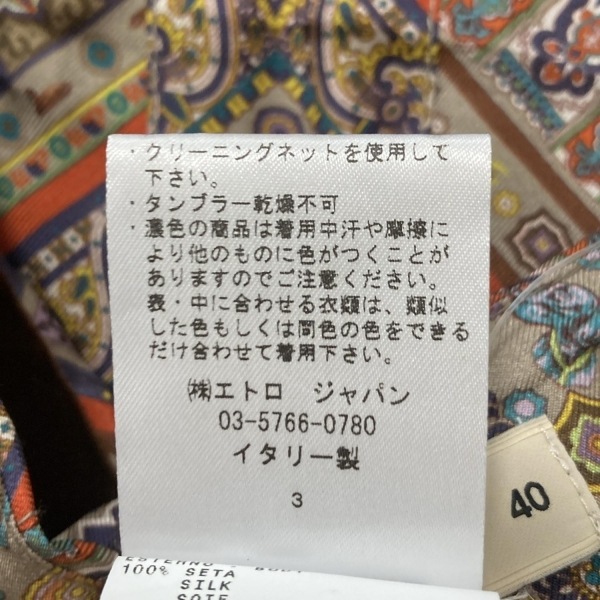 ・クリーニングネットを使用して
下さい。
・タンブラー乾燥不可
・濃色の商品は着用中汗や摩擦に
より他のものに色がつくことが
ありますのでご注意ください。
表・中に合わせる衣類は、類似
した色もしくは同色の色をできる
だけ合わせて着用下さい。
㈱エトロ ジャパン
03-5766-0780
イタリー製
3
40
100% SETA
SILK
SOIE